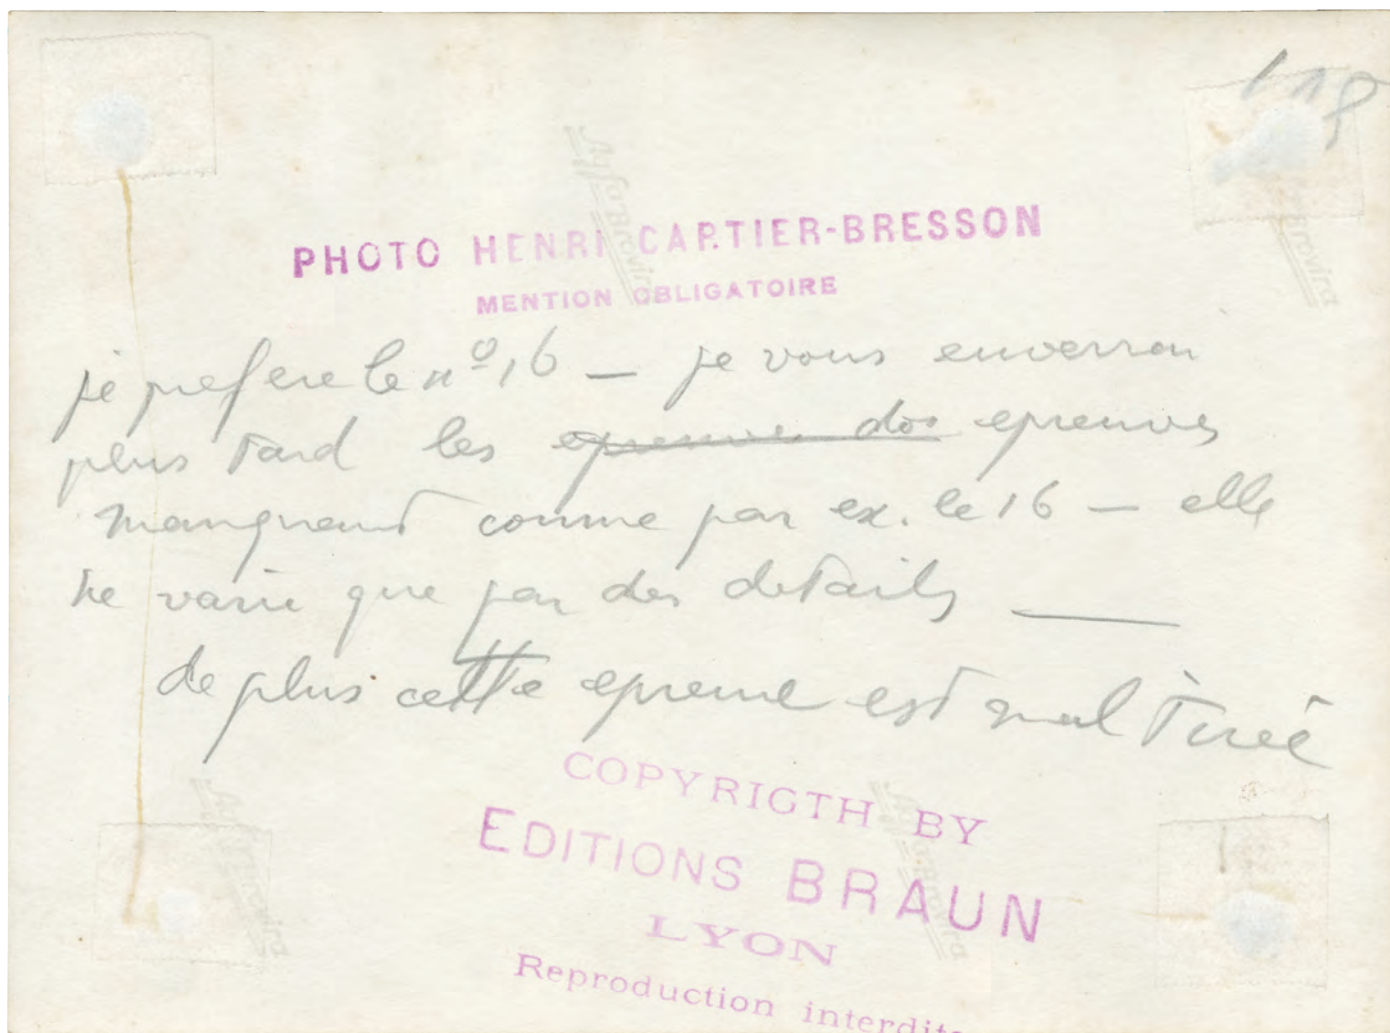 118
PHOTO HENRI CARTIER-BRESSON
MENTION OBLIGATOIRE
je prefere le nº 16 — je vous enverrai
plus tard les epreuves des epreuves
manquant comme par ex. le 16 — elle
ne varie que par des details —
de plus cette epreuve est mal tirée
COPYRIGTH BY
EDITIONS BRAUN
LYON
Reproduction interdite
Agfa Brovira
Brovira